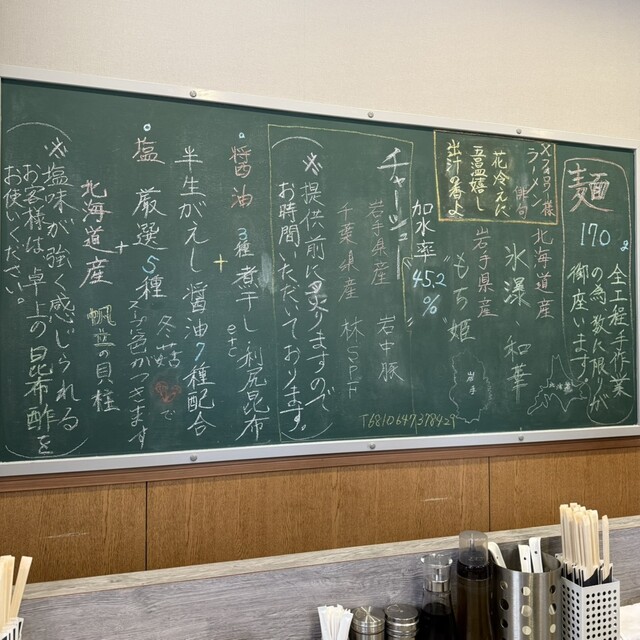 麺
170g
全工程手作業
の為数に限りが
御座います
北海道産
氷瀑、和華
岩手県産
"もち姫"
加水率
45.2
%
北海道
岩手
ラーメン 俳句
花冷えに
五臓嬉し
出汁の香よ
チャーシュー
岩手県産 岩中豚
千葉県産 林SPF
T6810647378429
※提供前に炙りますので
お時間いただいております。
醤油 3種煮干し 利尻昆布
+
半生がえし醤油7種配合
塩 厳選5種 冬菇で
スープに色がつきます
+
北海道産 帆立の貝柱
※塩味が強く感じられる
お客様は卓上の昆布酢を
お使いください。